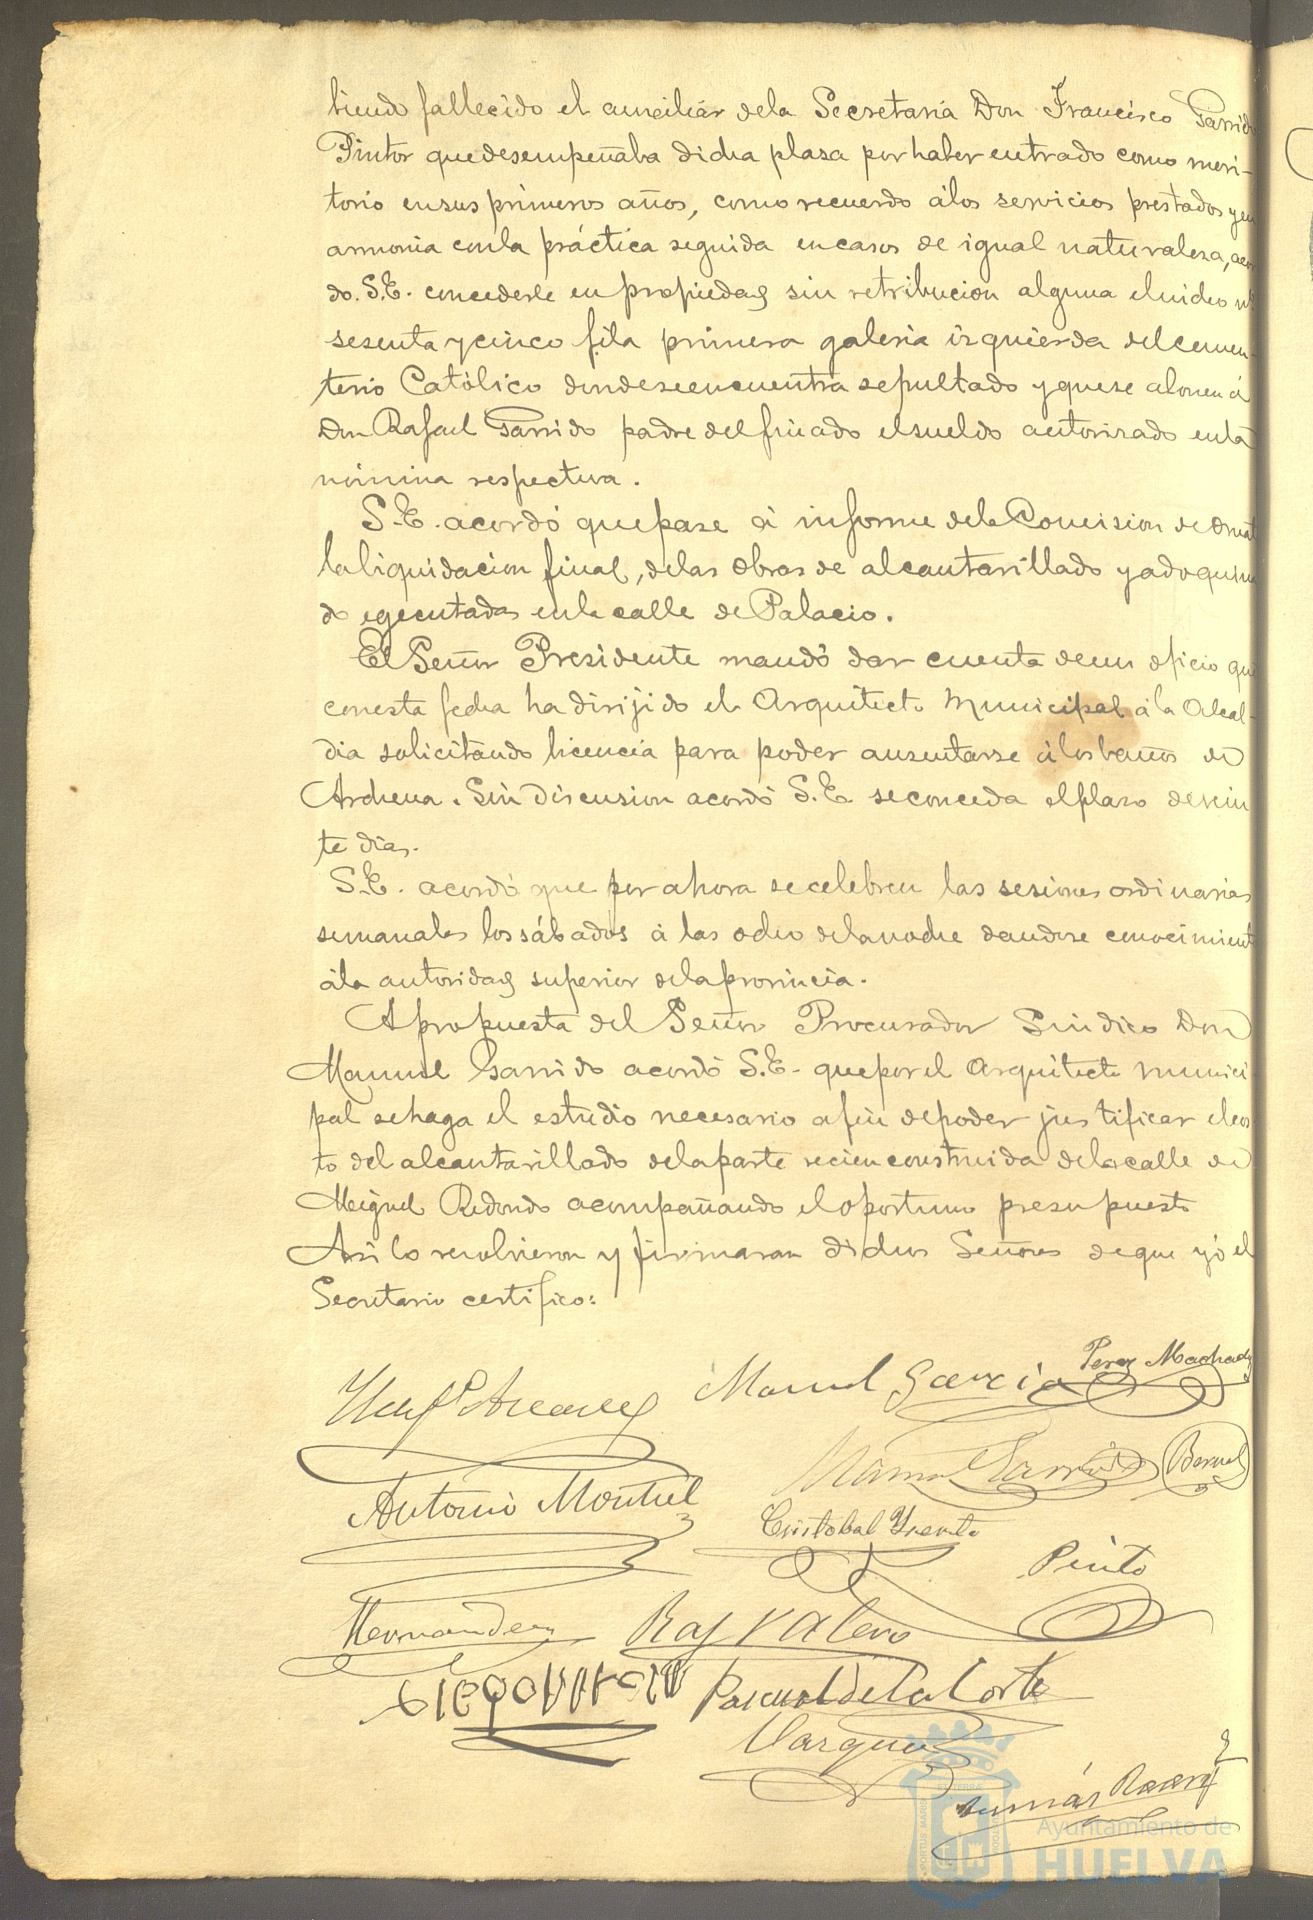 biendo fallecido el auxiliar dela Secretaria Don Francisco Garrido
Pintor quedesempeñaba dicha plaza por haber entrado como meri-
torio ensus primeros años, como recuerdo álos servicios prestados y en
armonia conla práctica seguida encasos de igual naturaleza, acor
do. S.E. concederle en propiedad sin retribucion alguna elnicho nº
sesenta y cinco fila primera galeria izquierda delcemen-
terio Católico dondeseencuentra sepultado y quese abonen á
Don Rafael Garrido padre delfinado elsueldo autorizado enla
nómina respectiva.
S.E. acordó quepase á informe dela Comision de Ornat
laliquidacion final, delas obras de alcantarillado y adoquina
do egecutadas enla calle de Palacio.
El Señor Presidente mandó dar cuenta deun oficio que
conesta fecha ha dirijido el Arquitecto Municipal á la Alcal-
dia solicitando licencia para poder ausentarse álosbaños de
Archena. Sin discusion acordó S.E. seconceda elplazo devein
te dias.
S.E. acordó que por ahora secelebren las sesiones ordinarias
semanales lossábados á las ocho delanoche dandose conocimient
ála autoridad superior delaprovincia.
A propuesta del Señor Procurador Sindico Don
Manuel Garrido acordó S.E. quepor el Arquitecto munici
pal sehaga el estudio necesario afin depoder justificar elcos
to del alcantarillado delaparte recien construida delacalle de
Miguel Redondo acompañando eloportuno presupuesto
Asi lo resolvieron y firmaran dichos Señores deque yó el
Secretario certifico:
Manuel Garcia Perez Machado
Manuel Garrido (Bernal)
Antonio Montiel
Cristobal Yuente
Pinto
Hernandez Raf Valero
Pascual de la Corte
Vazquez
Tomás
Ayuntamiento de
HUELVA